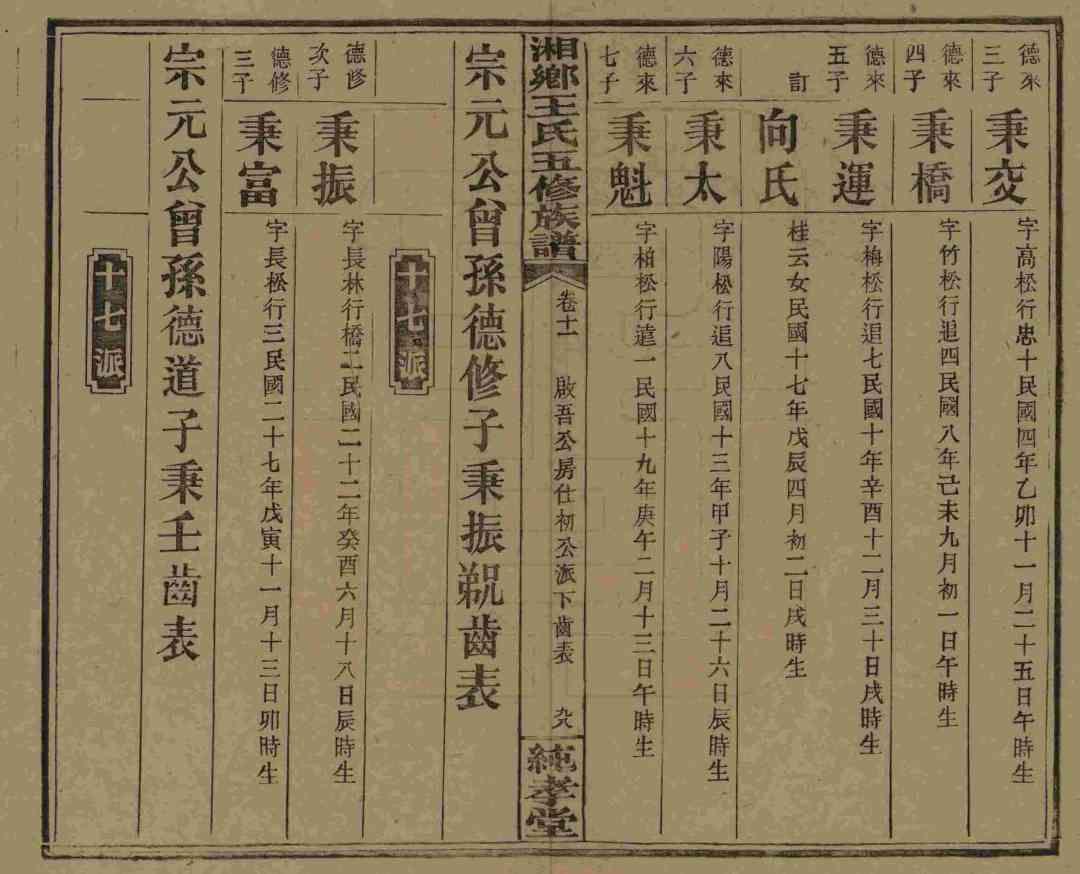 德來三子
秉交
字高松行忠十民國四年乙卯十一月二十五日午時生
德來四子
秉橋
字竹松行追四民國八年己未九月初一日午時生
德來五子
秉運
字梅松行追七民國十年辛酉十二月三十日戌時生
訂
向氏
桂云女民國十七年戊辰四月初二日戌時生
德來六子
秉太
字陽松行追八民國十三年甲子十月二十六日辰時生
德來七子
秉魁
字柏松行遠一民國十九年庚午二月十三日午時生
湘鄉王氏五修族譜
卷十一
啟吾公房仕初公派下齒表
九八
純孝堂
宗元公曾孫德修子秉振觬齒表
十七派
德修次子
秉振
字長林行橋二民國二十二年癸酉六月十八日辰時生
德修三子
秉富
字長松行三民國二十七年戊寅十一月十三日卯時生
宗元公曾孫德道子秉壬齒表
十七派